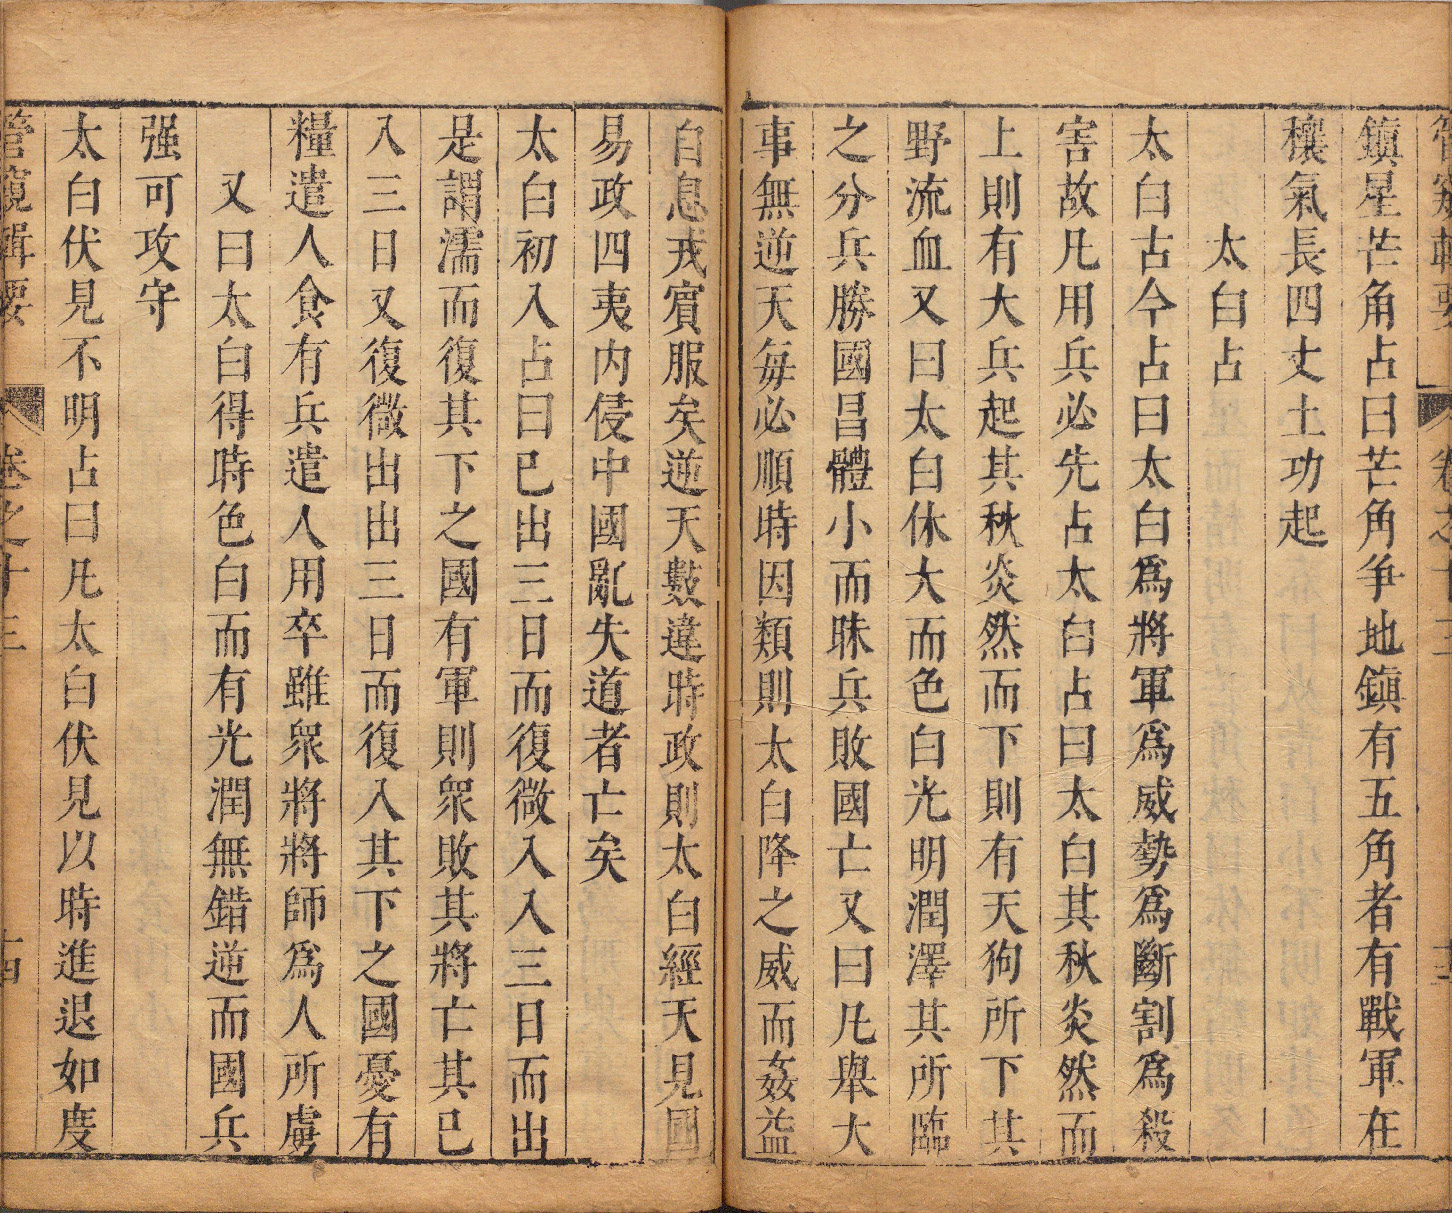 管窺輯要 卷之十三 十三
鎮星芒角占曰芒角爭地鎮有五角者有戰軍在
穰氣長四丈土功起
太白占
太白古今占曰太白爲將軍爲威勢爲斷割爲殺
害故凡用兵必先占太白占曰太白其秋炎然而
上則有大兵起其秋炎然而下則有天狗所下其
野流血又曰太白休大而色白光明潤澤其所臨
之分兵勝國昌體小而昧兵敗國亡又曰凡舉大
事無逆天每必順時因類則太白降之威而姦益
自息戎賓服矣逆天數違時政則太白經天見國
易政四夷内侵中國亂失道者亡矣
太白初入占曰已出三日而復微入入三日而出
是謂濡而復其下之國有軍則眾敗其將亡其已
入三日又復微出出三日而復入其下之國憂有
糧遣人食有兵遣人用卒雖眾將將師爲人所虜
又曰太白得時色白而有光潤無錯逆而國兵
强可攻守
太白伏見不明占曰凡太白伏見以時進退如度
管窺輯要 卷之十三 十四